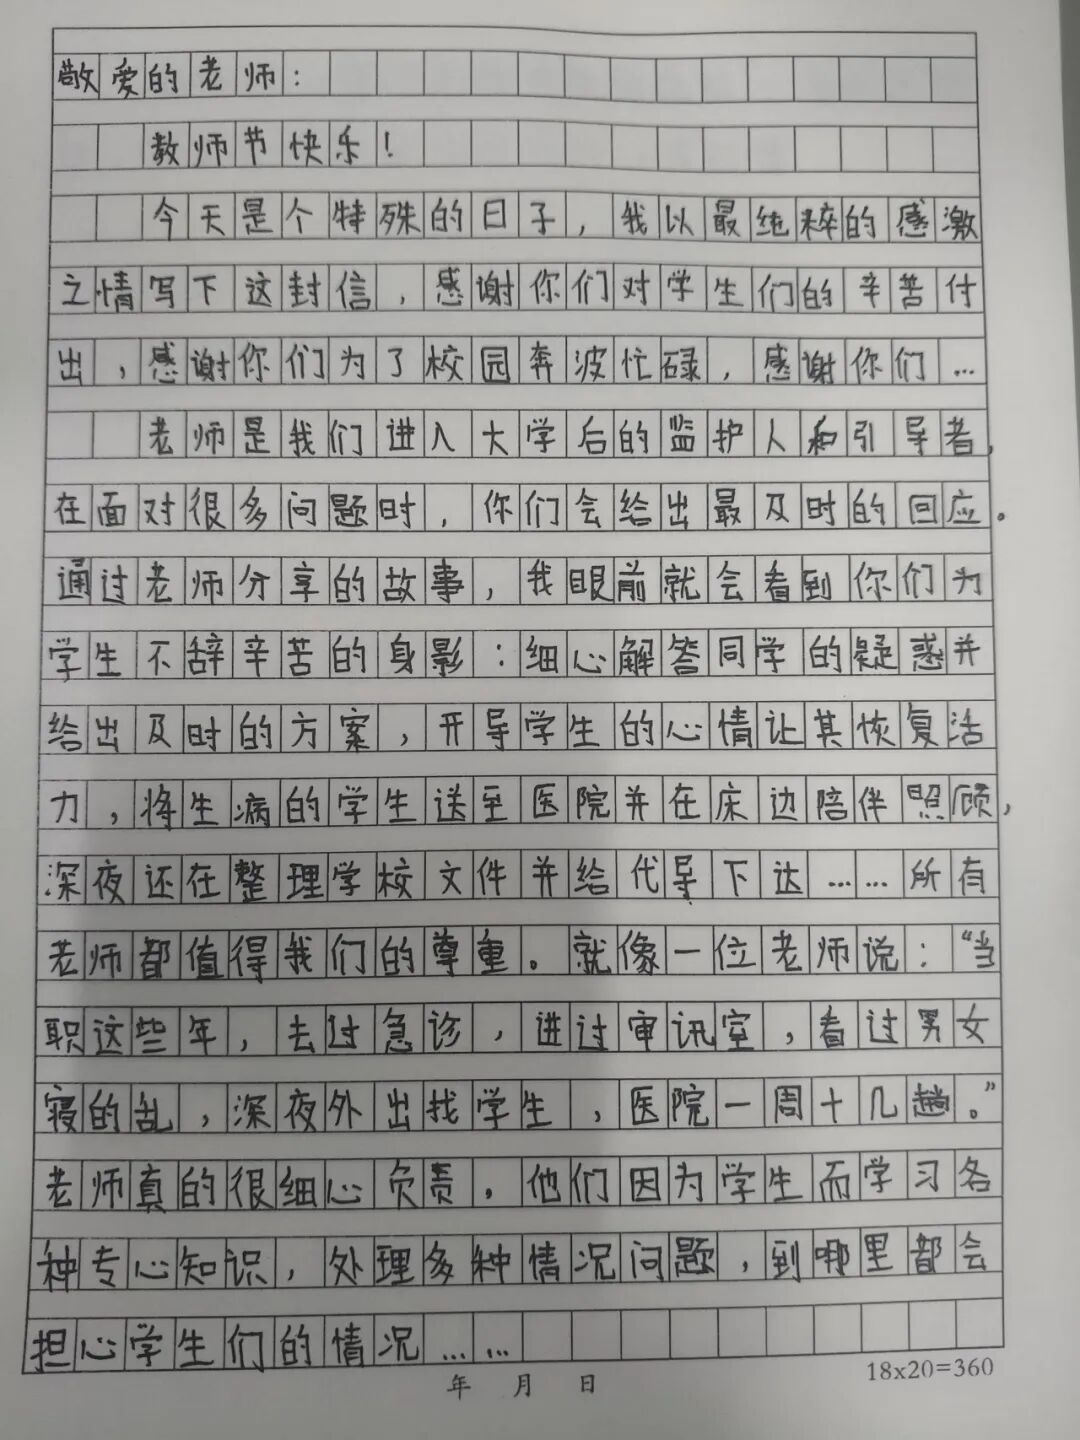 敬爱的老师：
教师节快乐！
今天是个特殊的日子，我以最纯粹的感激
之情写下这封信，感谢你们对学生们的辛苦付
出，感谢你们为了校园奔波忙碌，感谢你们…
老师是我们进入大学后的监护人和引导者，
在面对很多问题时，你们会给出最及时的回应。
通过老师分享的故事，我眼前就会看到你们为
学生不辞辛苦的身影：细心解答同学的疑惑并
给出及时的方案，开导学生的心情让其恢复活
力，将生病的学生送至医院并在床边陪伴照顾，
深夜还在整理学校文件并给代导下达……所有
老师都值得我们的尊重。就像一位老师说：“当
职这些年，去过急诊，进过审讯室，看过男女
寝的乱，深夜外出找学生，医院一周十几趟。”
老师真的很细心负责，他们因为学生而学习各
种专心知识，处理多种情况问题，到哪里都会
担心学生们的情况……
年 月 日
18x20=360